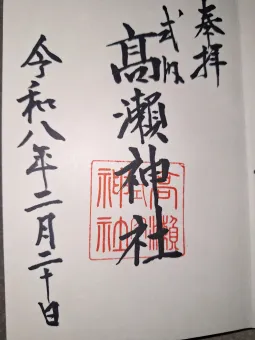 奉拝
式内
髙瀬神社
令和八年二月二十日
高瀬
神社